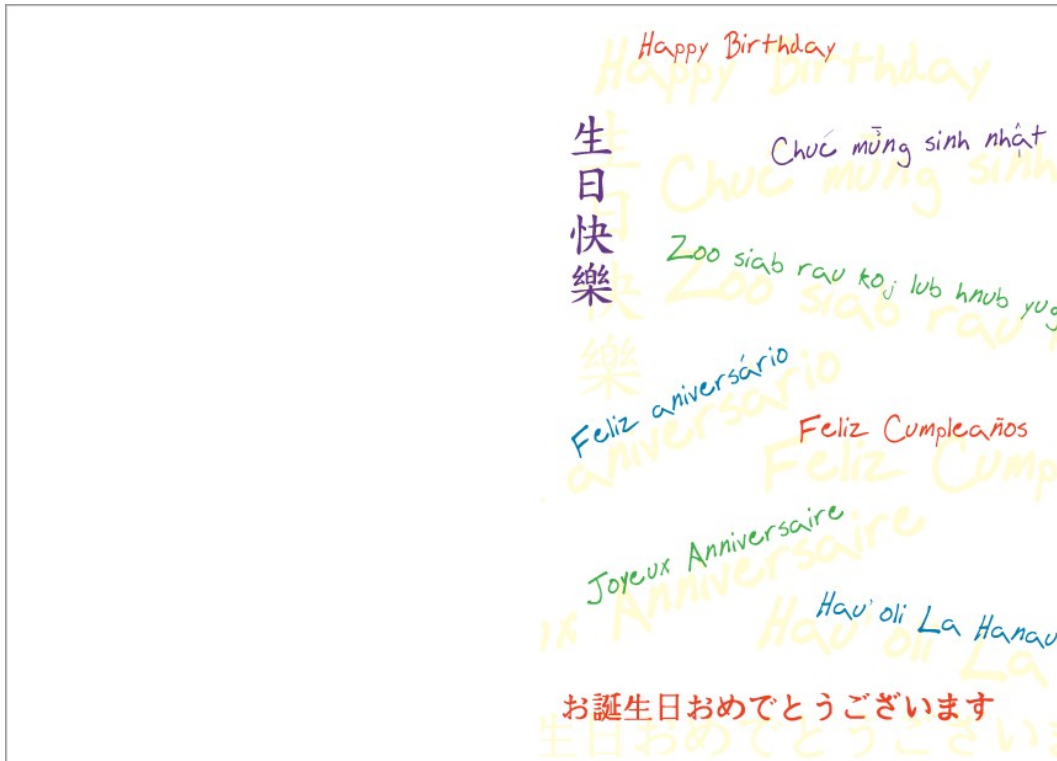 Happy Birthday
生日快樂
Chúc mừng sinh nhật
Zoo siab rau koj lub hnub yug
Feliz aniversário
Feliz Cumpleaños
Joyeux Anniversaire
Hau' oli La Hanau
お誕生日おめでとうございます